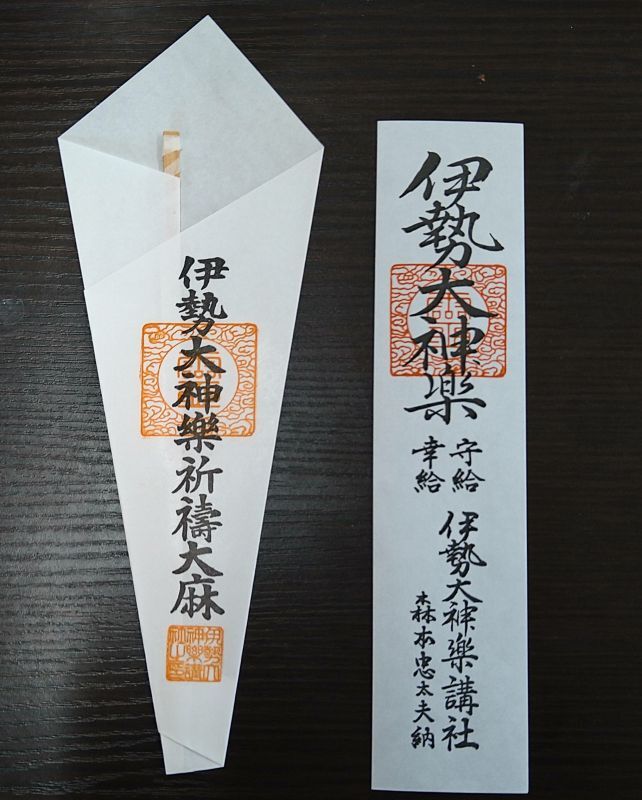 伊勢大神樂祈禱大麻
伊勢大神樂
守給
幸給
伊勢大神樂講社
森本忠太夫納